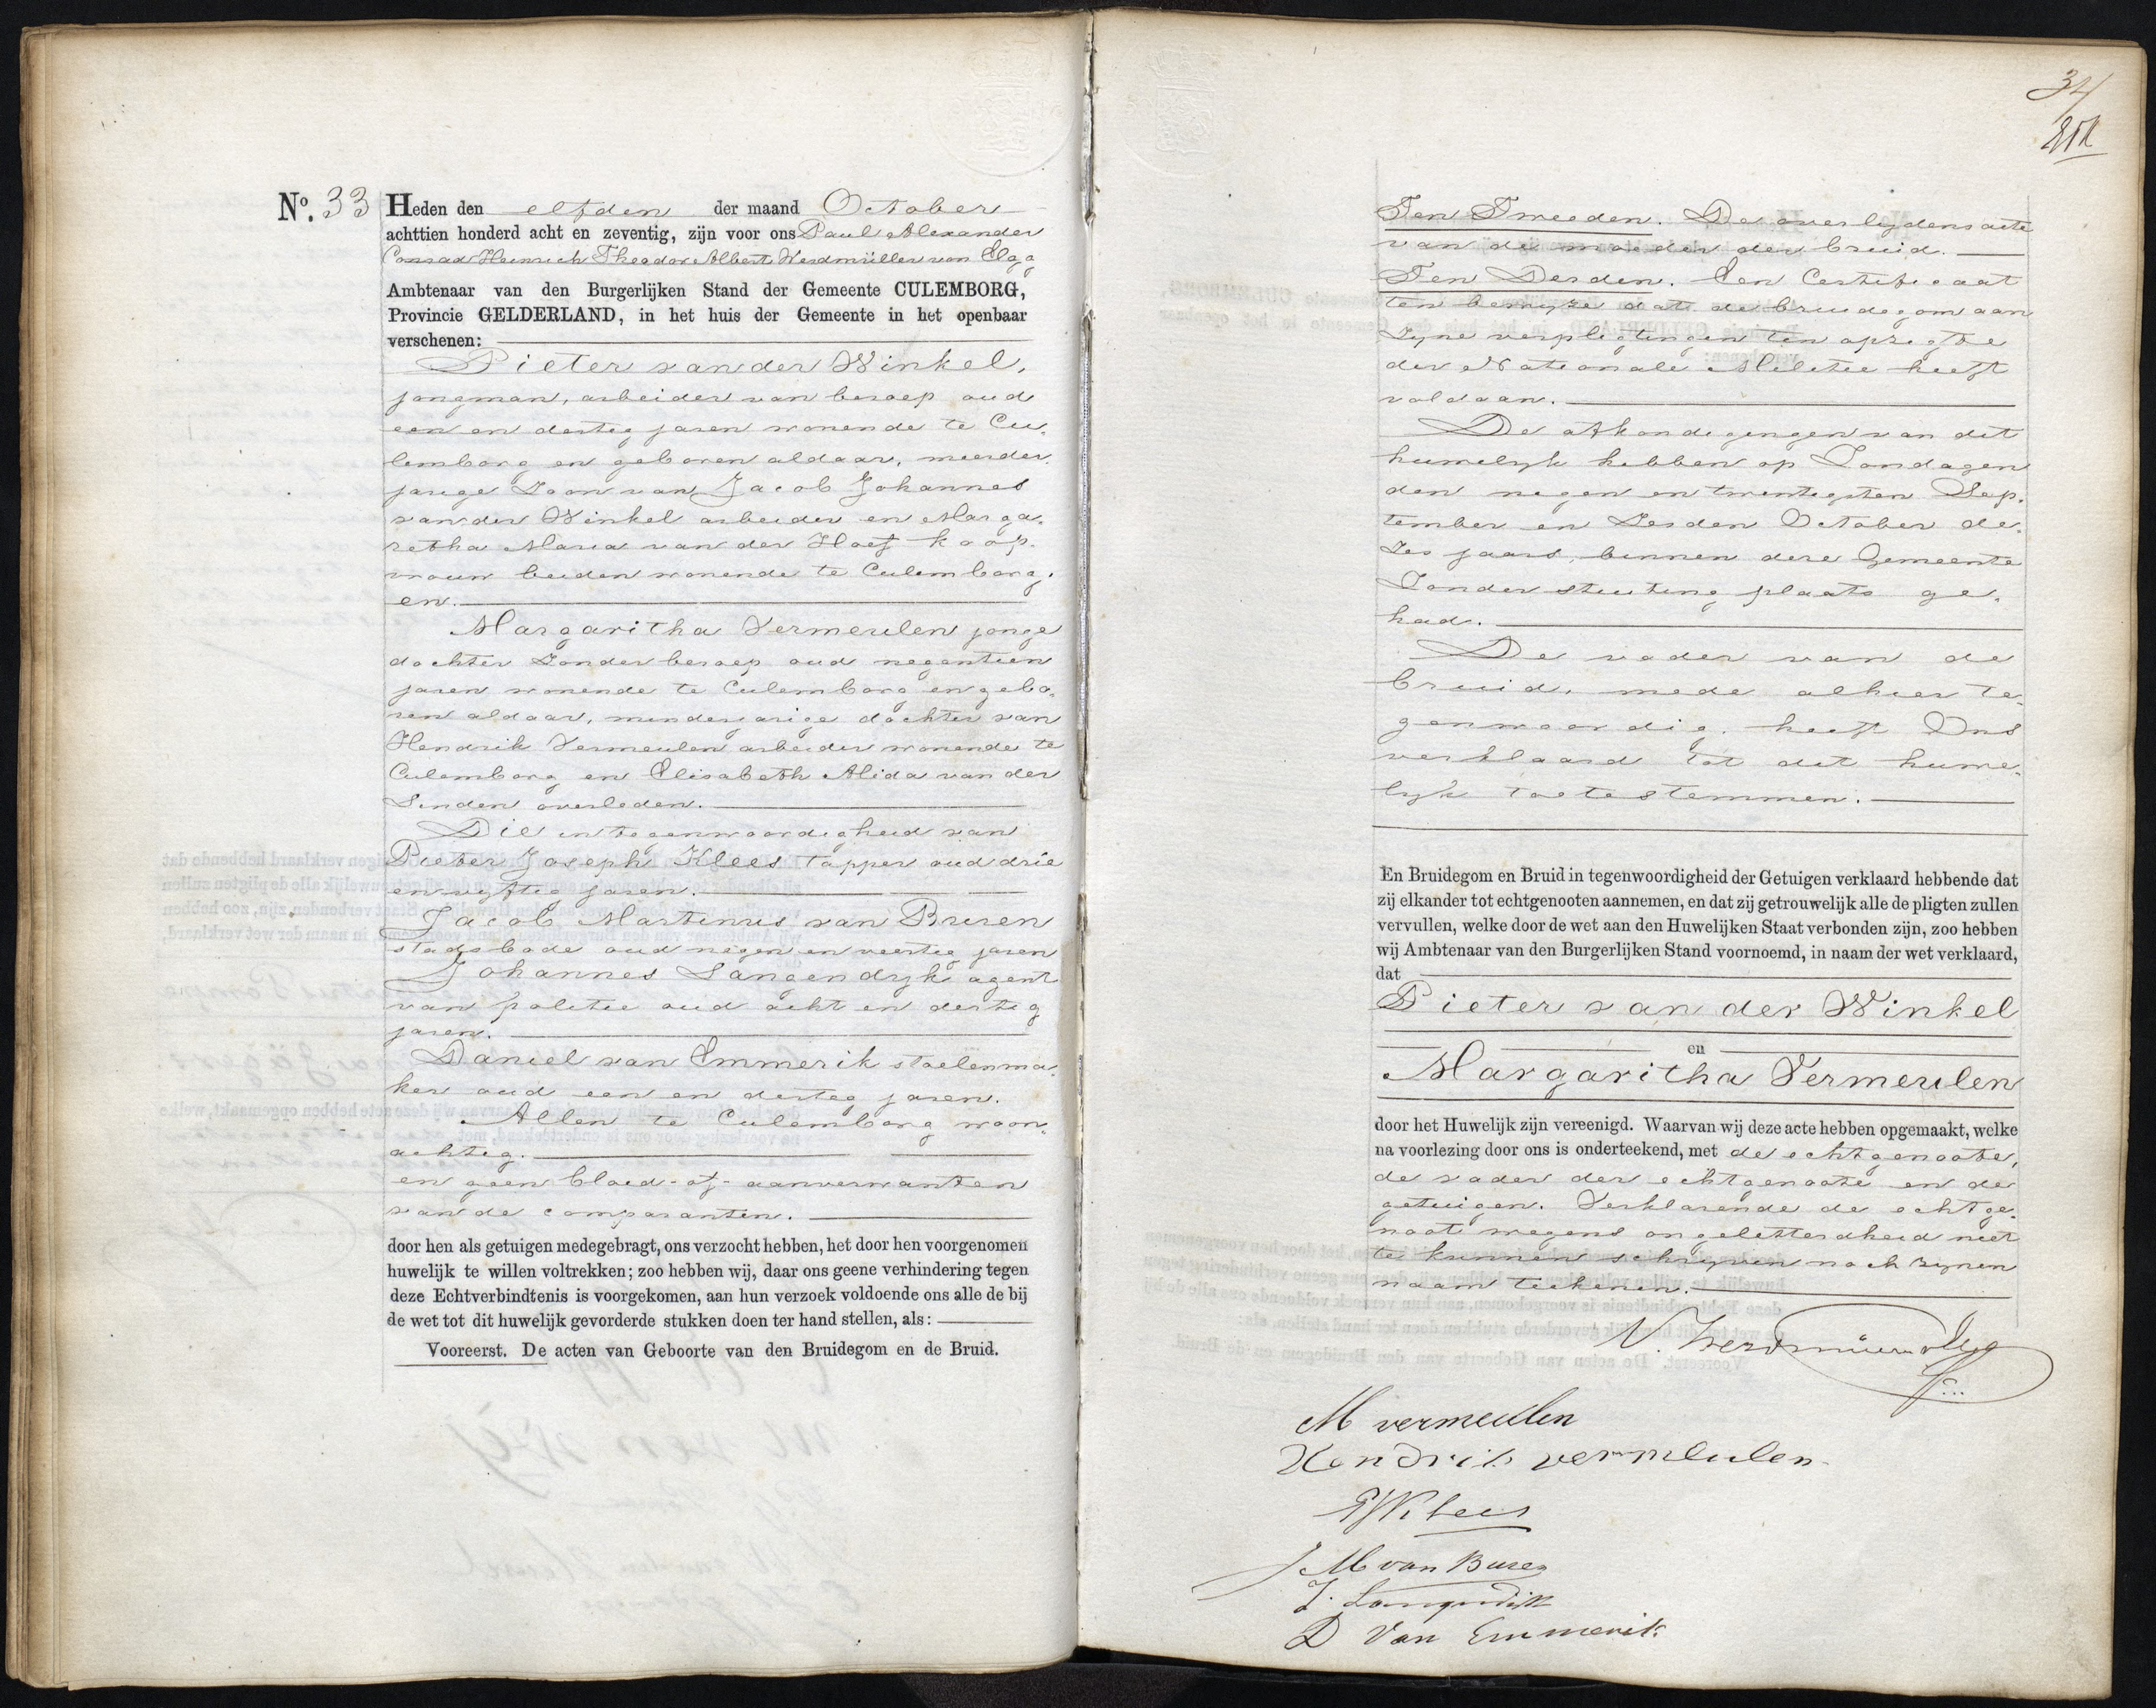 No. 33 Heden den elfden der maand October
achttien honderd acht en zeventig, zijn voor ons Paul Alexander
Conrad Heinrich Theodor Albert Werdmüller von Elgg
Ambtenaar van den Burgerlijken Stand der Gemeente CULEMBORG,
Provincie GELDERLAND, in het huis der Gemeente in het openbaar
verschenen:
Pieter van der Winkel,
jongman, arbeider van beroep oud
een en dertig jaren wonende te Cu-
lemborg en geboren aldaar, meerder-
jarige Zoon van Jacob Johannes
van der Winkel arbeider en Marga-
retha Maria van der Hoef koop-
vrouw beiden wonende te Culemborg.
en.
Margaritha Vermeulen jonge
dochter Zonder beroep oud negentien
jaren wonende te Culemborg en gebo-
ren aldaar, minderjarige dochter van
Hendrik Vermeulen arbeider wonende te
Culemborg en Elisabeth Alida van der
Linden overleden.
Die in tegenwoordigheid van
Pieter Joseph Klees tapper oud drie
en vyftig jaren.
Jacob Martinus van Buren
stadsbode oud negen en veertig jaren
Johannes Langendyk agent
van politie oud acht en dertig
jaren.
Daniel van Emmerik stoelenma-
ker oud een en dertig jaren.
Allen te Culemborg woon-
achtig.
en geen bloed- of aanverwanten
van de comparanten.
door hen als getuigen medegebragt, ons verzocht hebben, het door hen voorgenomen
huwelijk te willen voltrekken; zoo hebben wij, daar ons geene verhindering tegen
deze Echtverbindtenis is voorgekomen, aan hun verzoek voldoende ons alle de bij
de wet tot dit huwelijk gevorderde stukken doen ter hand stellen, als:
Vooreerst. De acten van Geboorte van den Bruidegom en de Bruid.
34
Ten Tweeden. De overlydens acte
van de moeder der bruid.
Ten Derden. Een Certificaat
ten bewyze dat de bruidegom aan
Zyne verpligtingen ten opzigte
der Nationale Militie heeft
voldaan.
De afkondigingen van dit
huwelyk hebben op Zondagen
den negen en twentigsten Sep-
tember en Zesden October de-
Zes jaars, binnen deze Gemeente
Zonder stuiting plaats ge-
had.
De vader van de
bruid, mede alhier te-
genwoordig, heeft Ons
verklaard tot dit huwe-
lyk toe te stemmen.
En Bruidegom en Bruid in tegenwoordigheid der Getuigen verklaard hebbende dat
zij elkander tot echtgenooten aannemen, en dat zij getrouwelijk alle de pligten zullen
vervullen, welke door de wet aan den Huwelijken Staat verbonden zijn, zoo hebben
wij Ambtenaar van den Burgerlijken Stand voornoemd, in naam der wet verklaard,
dat
Pieter van der Winkel
en
Margaritha Vermeulen
door het Huwelijk zijn vereenigd. Waarvan wij deze acte hebben opgemaakt, welke
na voorlezing door ons is onderteekend, met de echtgenoote,
de vader der echtgenoote en de
getuigen. Verklarende de echtge-
noot wegens ongeletterdheid niet
te kunnen schryven noch zynen
naam teekenen.
M vermeulen
Hendrik vermeulen
PJ Klees
J M van Buren
J. Langendijk
D Van Emmerik